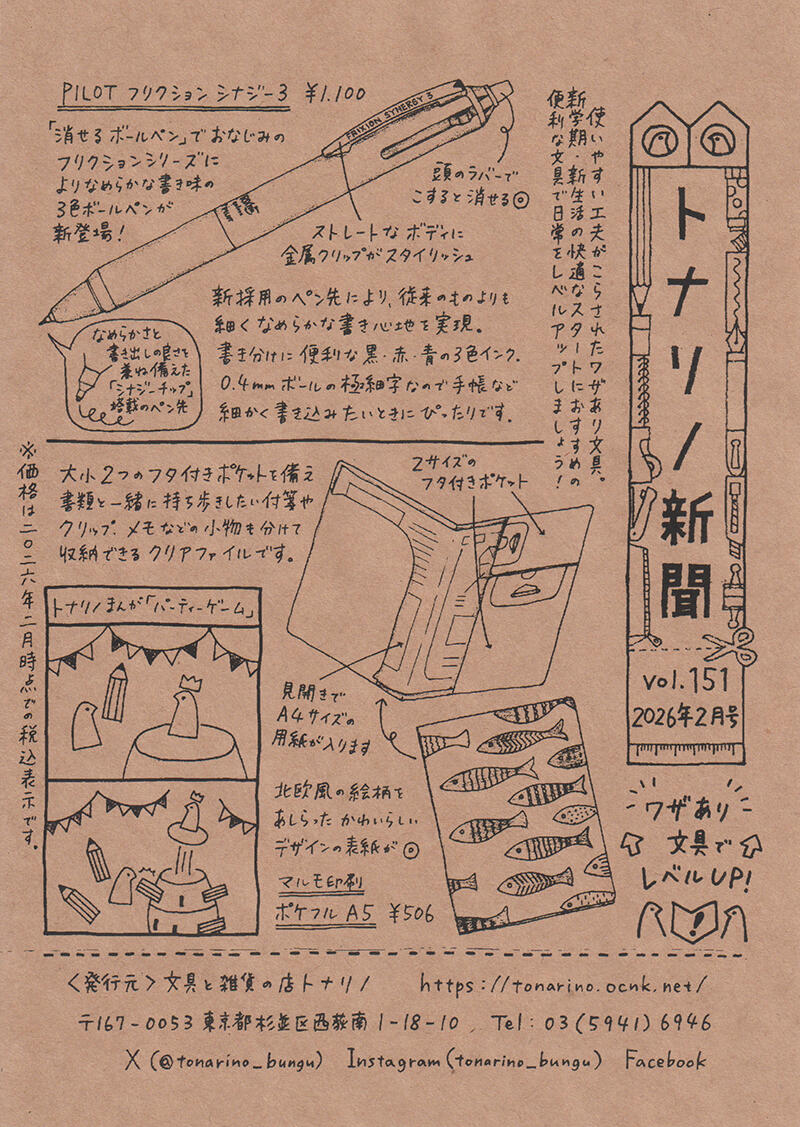 トナリノ新聞
vol.151
2026年2月号
使いやすい工夫がこらされたワザあり文具。
新学期・新生活の快適なスタートにおすすめの
便利な文具で日常をレベルアップしましょう!
PILOT フリクション シナジー3 ¥1.100
「消せるボールペン」でおなじみの
フリクションシリーズに
よりなめらかな書き味の
3色ボールペンが
新登場!
FRIXION SYNERGY 3
頭のラバーで
こすると消せる◎
ストレートなボディに
金属クリップがスタイリッシュ
新採用のペン先により、従来のものよりも
細くなめらかな書き心地を実現。
書き分けに便利な黒・赤・青の3色インク.
0.4mmボールの極細字なので手帳など
細かく書き込みたいときにぴったりです。
なめらかさと
書き出しの良さを
兼ね備えた
「シナジーチップ」
搭載のペン先
大小2つのフタ付きポケットを備え
書類と一緒に持ち歩きしたい付箋や
クリップ、メモなどの小物も分けて
収納できるクリアファイルです。
2サイズの
フタ付きポケット
見開きで
A4サイズの
用紙が入ります
北欧風の絵柄を
あしらったかわいらしい
デザインの表紙が◎
マルモ印刷
ポケフル A5 ¥506
トナリノまんが「パーティーゲーム」
※価格は二〇二六年二月時点での税込表示です。
ワザあり
文具で
レベルUP!
!
<発行元>文具と雑貨の店トナリノ https://tonarino.ocnk.net/
〒167-0053 東京都杉並区西荻南1-18-10, Tel:03(5941)6946
X (@tonarino_bungu) Instagram(tonarino_bungu) Facebook